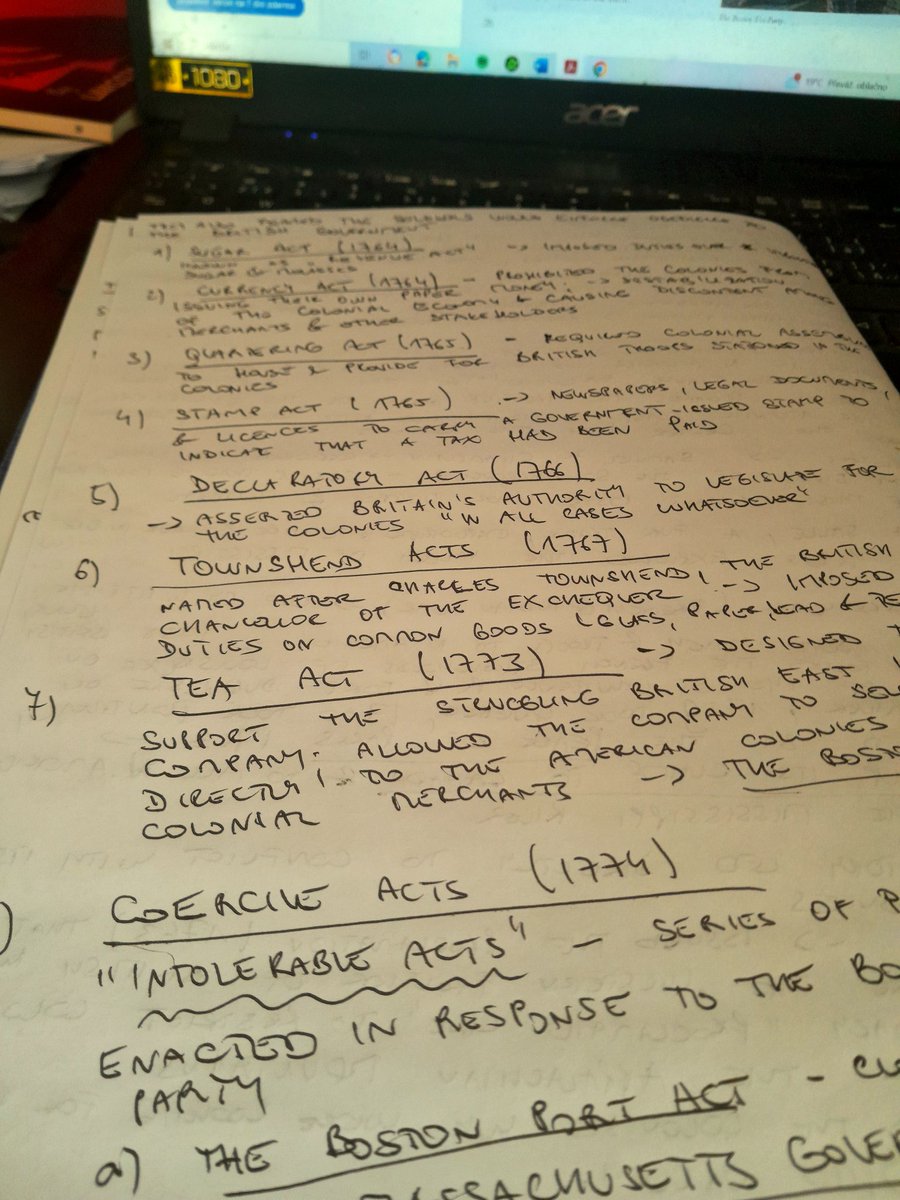 The Boston Tea Party.
1080
19°C Převáž. oblačno
acer
THE BRITISH GOVERNMENT
1) SUGAR ACT (1764) -> IMPOSED DUTIES
REVENUE ACT"
SUGAR & MOLASSES
2) CURRENCY ACT (1764) - PROHIBITED THE COLONIES FROM
ISSUING THEIR OWN PAPER MONEY. -> DESTABILIZATION
OF THE COLONIAL ECONOMY & CAUSING DISCONTENT
MERCHANTS & OTHER STAKEHOLDERS
3) QUARTERING ACT (1765) - REQUIRED COLONIAL
TO HOUSE & PROVIDE FOR BRITISH TROOPS STATIONED IN THE
COLONIES
4) STAMP ACT (1765) -> NEWSPAPERS, LEGAL DOCUMENTS
& LICENCES TO CARRY A GOVERNMENT-ISSUED STAMP TO
INDICATE THAT A TAX HAD BEEN PAID
5) DECLARATORY ACT (1766)
-> ASSERTED BRITAIN'S AUTHORITY TO LEGISLATE FOR
THE COLONIES "IN ALL CASES WHATSOEVER"
6) TOWNSHEND ACTS (1767)
NAMED AFTER CHARLES TOWNSHEND, THE BRITISH
CHANCELOR OF THE EXCHEQUER. -> IMPOSED
DUTIES ON COMMON GOODS (GLASS, PAPER, LEAD &
7) TEA ACT (1773) -> DESIGNED
SUPPORT THE STRUGGLING BRITISH EAST
COMPANY. ALLOWED THE COMPANY TO
DIRECTLY TO THE AMERICAN COLONIES
COLONIAL MERCHANTS -> THE BOSTO
COERCIVE ACTS (1774)
"INTOLERABLE ACTS" - SERIES OF P
ENACTED IN RESPONSE TO THE BO
PARTY
a) THE BOSTON PORT ACT -
MASSACHUSETTS GOVER